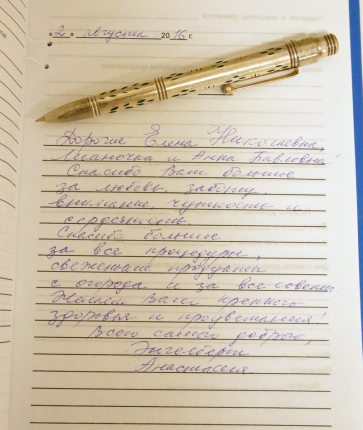 «2» августа 2016 г.
Дорогие Елена Николаевна,
Лианочка и Анна Павловна!
Спасибо Вам большое
за любовь, заботу,
внимание, чуткость и
сердечность.
Спасибо большое
за все процедуры,
свежие продукты
с огорода и за все советы.
Желаем Вам крепкого
здоровья и процветания!
Всего самого доброго,
Энгельберги
Анастасия